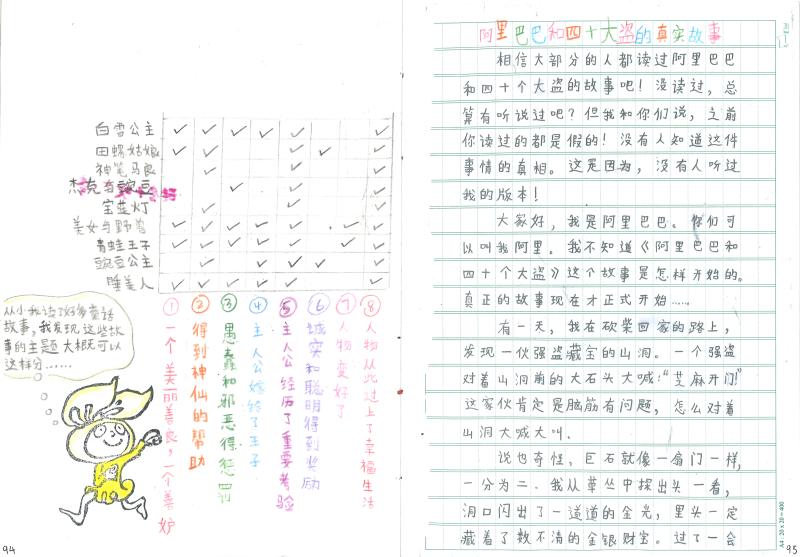 白雪公主
田螺姑娘
神笔马良
杰克与豌豆
宝莲灯
美女与野兽
青蛙王子
豌豆公主
睡美人
① 一个美丽善良,一个善妒
② 得到神仙的帮助
③ 愚蠢和邪恶得惩罚
④ 主人公嫁给了王子
⑤ 主人公经历了重要考验
⑥ 诚实和聪明得到奖励
⑦ 人物变好了
⑧ 人物从此过上了幸福生活
从小我读了好多童话
故事,我发现这些故
事的主题大概可以
这样分……
94
阿里巴巴和四十大盗的真实故事
相信大部分的人都读过阿里巴巴
和四十个大盗的故事吧!没读过,总
算有听说过吧?但我和你们说,之前
你读过的都是假的!没有人知道这件
事情的真相。这是因为,没有人听过
我的版本!
大家好,我是阿里巴巴。你们可
以叫我阿里。我不知道《阿里巴巴和
四十个大盗》这个故事是怎样开始的。
真正的故事现在才正式开始……
有一天,我在砍柴回家的路上,
发现一伙强盗藏宝的山洞。一个强盗
对着山洞前的大石头大喊:“芝麻开门!”
这家伙肯定是脑筋有问题,怎么对着
山洞大喊大叫.
说也奇怪,巨石就像一扇门一样,
一分为二.我从草丛中探出头一看,
洞口闪出了一道道的金光,里头一定
藏着了数不清的金银财宝。过了一会
A4:20x20=400
95